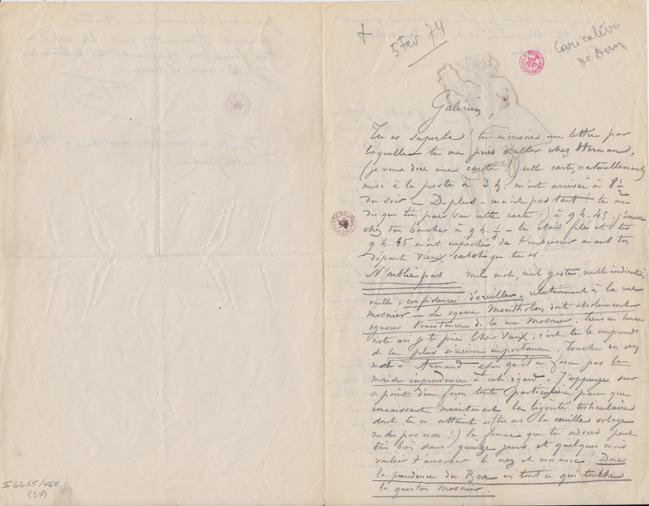 5 Fev 74
Caricature
de Dum
Galerien,
Tu es superbe ! tu m'envoies une lettre par
laquelle tu me pries d'aller chez Herman,
(je veux dire une carte !) cette carte, naturellement
mise à la poste à 3 h. m'est arrivée à 8 h ½
du soir — De plus — ce n'est pas tout — tu me
dis que tu pars (sur cette carte :) à 9 h. 45. J'arrive
chez ton à 9 h. ½ — tu étais filé et tes
9 h. 45 m'ont empêché de t'embrasser avant ton
départ vieux que tu es.
N'oublie pas nul mot, nul geste, nulle indication
nulle « confidence d'oreiller » relativement à la rue
Mosnier — Le square Montholon doit absolument
ignorer l'existence de la rue Mosnier. tiens en bonne
note je te prie cher vieux, c'est tu le comprends
de la plus sérieuse importance. touche en un
mot à afin qu'il ne fasse pas la
moindre imprudence à cet égard. J'appuye sur
ce point d'une façon toute particulière parce que
connaissant maintenant la légèreté testiculaire
dont tu es atteint (tu as la couille volage
ne dis pas non !) la femme que tu adores peut
très bien dans quinze jours et quelques mois
vouloir t'arracher le nez et moi aussi. Donc
la prudence du Boa en tout ce qui touche
la question Mosnier.
II 6655/468
(37)